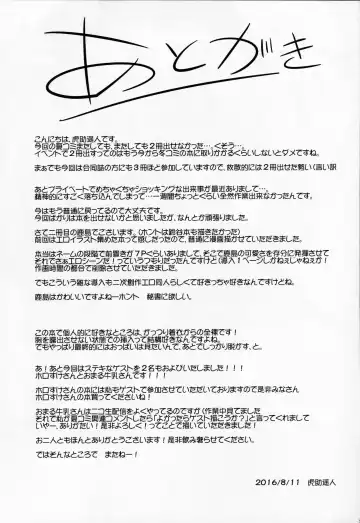 あとがき
こんにちは、虎助遥人です。
今回の夏コミまたしても、またしても2冊出せなかった…。くそう…。
イベントで2冊出すってのはもう今から冬コミの本に取りかかるぐらいしないとダメですね。
まぁでも今回は合同誌の方にも3冊ほど参加していますので、救数的には2冊出せた願い(言い訳
あとプライベートでめちゃくちゃショッキングな出来事が最近ありまして…。
精神的にすごく落ち込んでしまって…一週間ちょっとぐらい全然作業出来なかったんです。
今はもう普通に戻ってるので大丈夫です。
今回ばかりは本を出せないかと思いましたが、なんとか頑張りました。
さて二冊目の鹿島でございます。(ホントは鈴谷本も描きたかった)
前回はエロイラスト集めた本って感じだったので、普通に漫画描かせていただきました。
本当はネームの段階で前置きが7Pぐらいありまして、そこで鹿島の可愛さを存分に発揮させて
それでさぁエロシーンだ!っていうつもりだったんですけど(導入1ページしかねぇじゃねぇか!
作画時間の都合で削除させていただきました。
でもこういう雑な導入も二次創作エロ同人らしくて好きなんですけどね。
鹿島はかわいいですよねーホント 秘書に欲しい。
この本で個人的に好きなところは、がっつり着衣からの全裸です!
胸を露出させない状態での挿入って結構好きなんですよね。
でもやっぱり最終的にはおっぱいは見たいんで、あとでしっかり脱がす、と。
あ!あと今回はステキなゲストを2名もおよびいたしました!!
ホロすけさんとおまる牛乳さんです!!
ホロすけさんの本には私もゲストで参加させていただいておりますので是非みなさん
ホロすけさんの本買ってくださいね!
おまる牛乳さんはニコ生配信をよくやってるのですが(作業中見てました
それで私が夏コミ関連コメントしたら「よかったらゲスト描こうか?」と言ってくれまして
いやー、ありがたい!是非よろしく!ってことで描いていただきました!
お二人ともほんとありがとうございます!是非飲み奢らせてください。
ではそんなところで またねー!
2016/8/11 虎助遥人